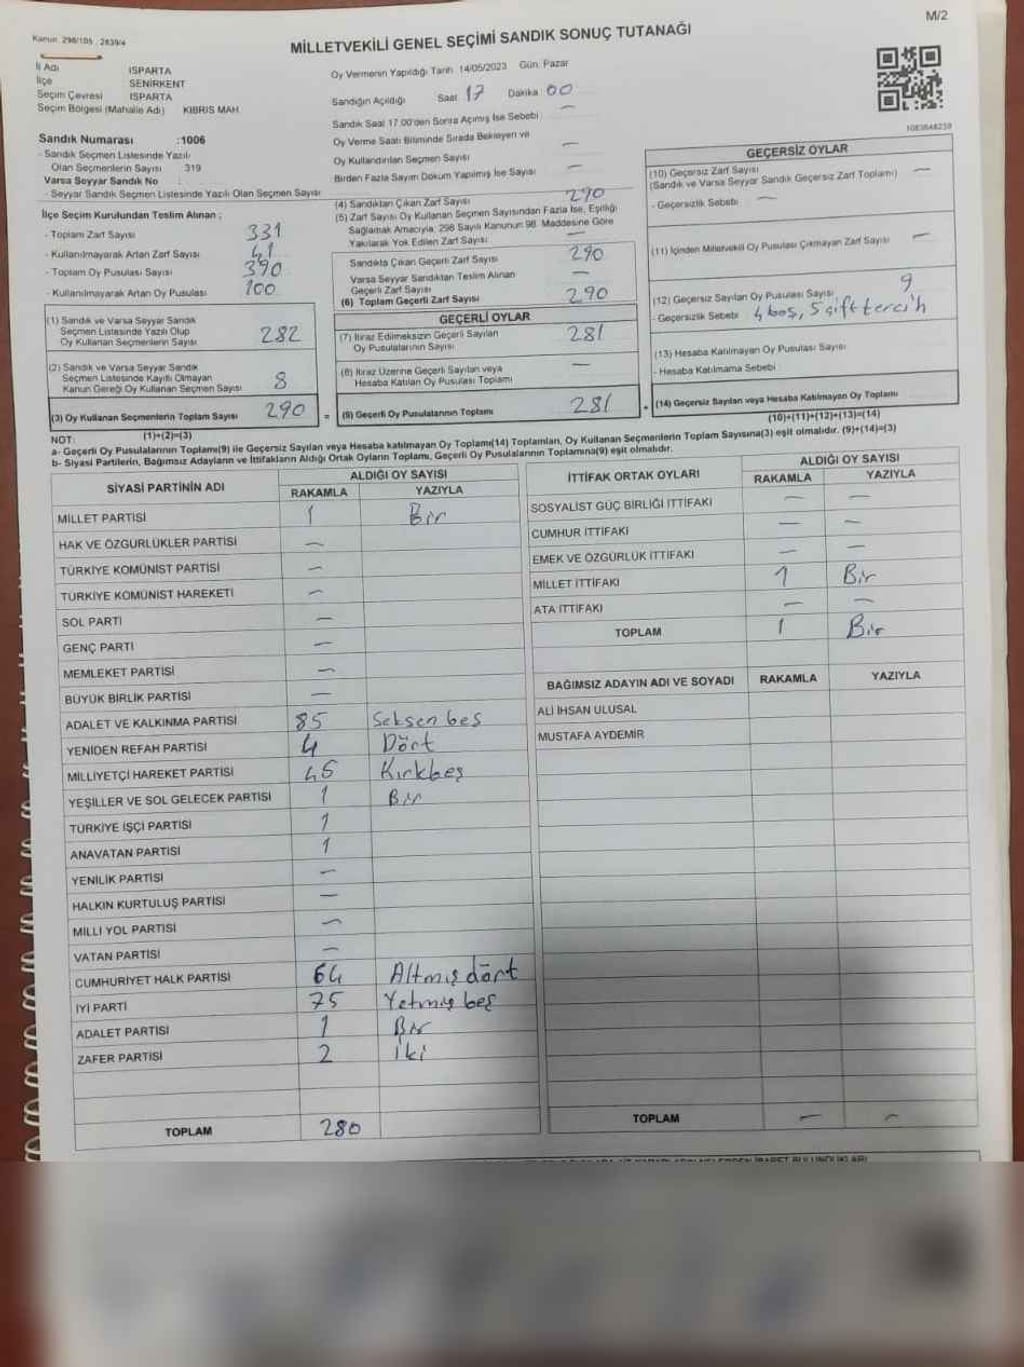 M/2
Kanun: 298/105 : 2839/4
MİLLETVEKİLİ GENEL SEÇİMİ SANDIK SONUÇ TUTANAĞI
İl Adı ISPARTA
İlçe SENİRKENT
Seçim Çevresi ISPARTA
Seçim Bölgesi (Mahalle Adı) KIBRIS MAH.
Sandık Numarası :1006
- Sandık Seçmen Listesinde Yazılı
Olan Seçmenlerin Sayısı 319
Varsa Seyyar Sandık No
- Seyyar Sandık Seçmen Listesinde Yazılı Olan Seçmen Sayısı
İlçe Seçim Kurulundan Teslim Alınan ;
- Toplam Zarf Sayısı 331
- Kullanılmayarak Artan Zarf Sayısı 41
- Toplam Oy Pusulası Sayısı 390
- Kullanılmayarak Artan Oy Pusulası 100
(1) Sandık ve Varsa Seyyar Sandık
Seçmen Listesinde Yazılı Olup
Oy Kullanan Seçmenlerin Sayısı 282
(2) Sandık ve Varsa Seyyar Sandık
Seçmen Listesinde Kayıtlı Olmayan
Kanun Gereği Oy Kullanan Seçmen Sayısı 8
(3) Oy Kullanan Seçmenlerin Toplam Sayısı 290 =
(1)+(2)=(3)
Oy Vermenin Yapıldığı Tarih 14/05/2023 Gün: Pazar
Sandığın Açıldığı Saat 17 Dakika 00
Sandık Saat 17.00'den Sonra Açılmış İse Sebebi —
Oy Verme Saati Bitiminde Sırada Bekleyen ve
Oy Kullandırılan Seçmen Sayısı —
Birden Fazla Sayım Döküm Yapılmış İse Sayısı —
(4) Sandıktan Çıkan Zarf Sayısı 290
(5) Zarf Sayısı Oy Kullanan Seçmen Sayısından Fazla İse, Eşitliği
Sağlamak Amacıyla; 298 Sayılı Kanunun 98. Maddesine Göre
Yakılarak Yok Edilen Zarf Sayısı —
Sandıkta Çıkan Geçerli Zarf Sayısı 290
Varsa Seyyar Sandıktan Teslim Alınan
Geçerli Zarf Sayısı —
(6) Toplam Geçerli Zarf Sayısı 290
GEÇERLİ OYLAR
(7) İtiraz Edilmeksizin Geçerli Sayılan
Oy Pusulalarının Sayısı 281
(8) İtiraz Üzerine Geçerli Sayılan veya
Hesaba Katılan Oy Pusulası Toplamı —
(9) Geçerli Oy Pusulalarının Toplamı 281 +
1083648239
GEÇERSİZ OYLAR
(10) Geçersiz Zarf Sayısı
(Sandık ve Varsa Seyyar Sandık Geçersiz Zarf Toplamı) —
- Geçersizlik Sebebi —
(11) İçinden Milletvekili Oy Pusulası Çıkmayan Zarf Sayısı —
(12) Geçersiz Sayılan Oy Pusulası Sayısı 9
- Geçersizlik Sebebi 4 boş, 5 çift tercih
(13) Hesaba Katılmayan Oy Pusulası Sayısı
- Hesaba Katılmama Sebebi
(14) Geçersiz Sayılan veya Hesaba Katılmayan Oy Toplamı
(10)+(11)+(12)+(13)=(14)
NOT:
a- Geçerli Oy Pusulalarının Toplamı(9) ile Geçersiz Sayılan veya Hesaba katılmayan Oy Toplamı(14) Toplamları, Oy Kullanan Seçmenlerin Toplam Sayısına(3) eşit olmalıdır. (9)+(14)=(3)
b- Siyasi Partilerin, Bağımsız Adayların ve İttifakların Aldığı Ortak Oyların Toplamı, Geçerli Oy Pusulalarının Toplamına(9) eşit olmalıdır.
SİYASİ PARTİNİN ADI ALDIĞI OY SAYISI
RAKAMLA YAZIYLA
MİLLET PARTİSİ 1 Bir
HAK VE ÖZGÜRLÜKLER PARTİSİ —
TÜRKİYE KOMÜNİST PARTİSİ —
TÜRKİYE KOMÜNİST HAREKETİ —
SOL PARTİ —
GENÇ PARTİ —
MEMLEKET PARTİSİ —
BÜYÜK BİRLİK PARTİSİ —
ADALET VE KALKINMA PARTİSİ 85 Seksen beş
YENİDEN REFAH PARTİSİ 4 Dört
MİLLİYETÇİ HAREKET PARTİSİ 45 Kırkbeş
YEŞİLLER VE SOL GELECEK PARTİSİ 1 Bir
TÜRKİYE İŞÇİ PARTİSİ 1
ANAVATAN PARTİSİ 1
YENİLİK PARTİSİ —
HALKIN KURTULUŞ PARTİSİ —
MİLLİ YOL PARTİSİ —
VATAN PARTİSİ —
CUMHURİYET HALK PARTİSİ 64 Altmış dört
İYİ PARTİ 75 Yetmiş beş
ADALET PARTİSİ 1 Bir
ZAFER PARTİSİ 2 iki
TOPLAM 280
İTTİFAK ORTAK OYLARI ALDIĞI OY SAYISI
RAKAMLA YAZIYLA
SOSYALİST GÜÇ BİRLİĞİ İTTİFAKI — —
CUMHUR İTTİFAKI — —
EMEK VE ÖZGÜRLÜK İTTİFAKI — —
MİLLET İTTİFAKI 1 Bir
ATA İTTİFAKI — —
TOPLAM 1 Bir
BAĞIMSIZ ADAYIN ADI VE SOYADI RAKAMLA YAZIYLA
ALİ İHSAN ULUSAL
MUSTAFA AYDEMİR
TOPLAM — —